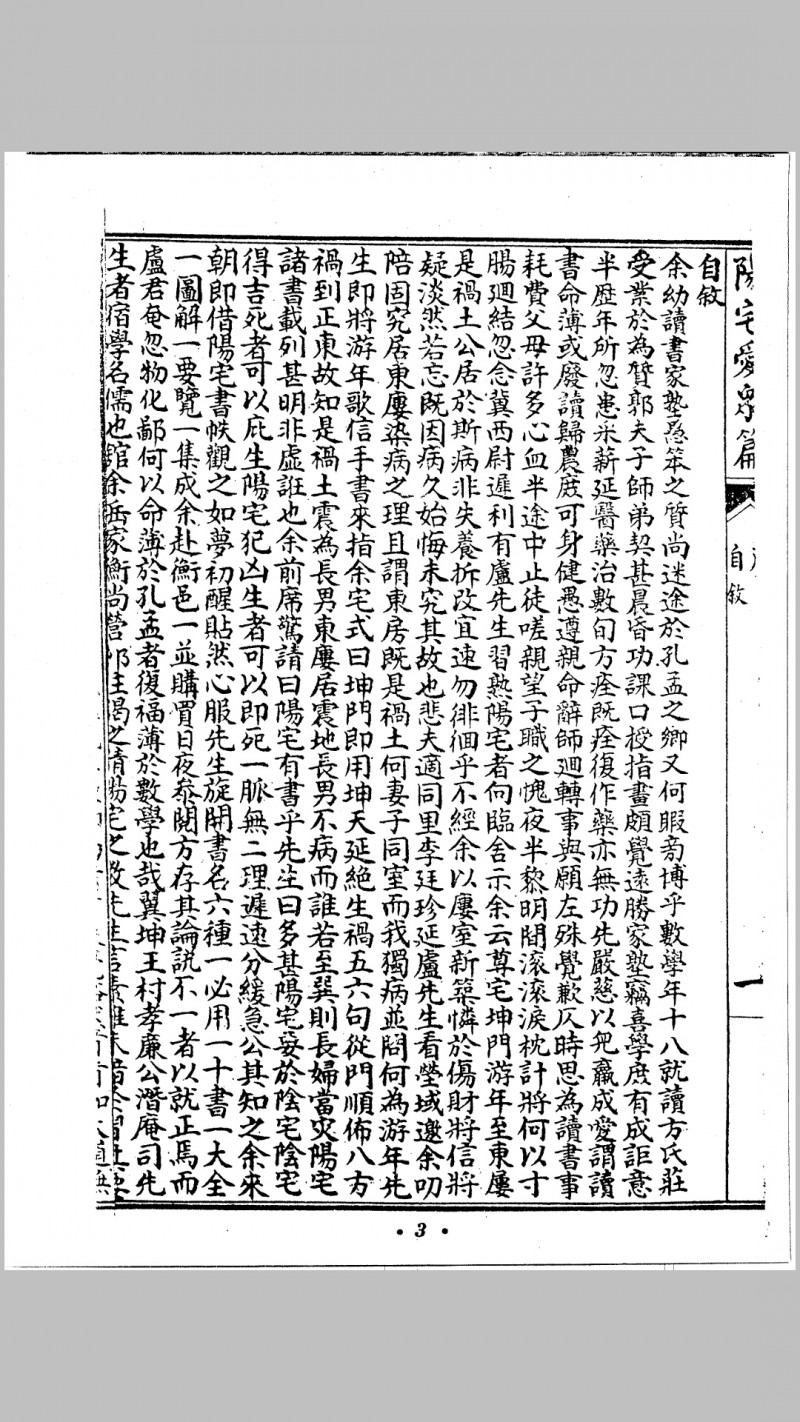 陽宅愛衆篇
自敘
一
自敘
余幼讀書家塾愚笨之質尚迷途於孔孟之鄉又何暇旁博乎數學年十八就讀方氏莊
受業於為贊郭夫子師弟契甚晨昏功課口授指畫頗覺遠勝家塾竊喜學庶有成詎意
半歷年所忽患采薪延醫藥治數旬方痊既痊復作藥亦無功先嚴慈以兜羸成愛謂讀
書命薄或廢讀歸農庶可身健愚遵親命辭師迴轉事與願左殊覺歉仄時思為讀書事
耗費父母許多心血半途中止徒嗟親望子職之愧夜半黎明間滾滾淚枕計將何以寸
腸迴結忽念冀西尉遲利有盧先生習熟陽宅者向臨舍示余云尊宅坤門游年至東屢
是禍土公居於斯病非失養拆改宜速勿徘徊乎不經余以屢室新築憐於傷財將信將
疑淡然若忘既因病久始悔未究其故也悲夫適同里李廷珍延盧先生看塋域邀余叨
陪固究居東屢染病之理且謂東房既是禍土何妻子同室而我獨病並問何為游年先
生即將游年歌信手書來指余宅式曰坤門即用坤天延絕生禍五六句從門順佈八方
禍到正東故知是禍土震為長男東屢居震地長男不病而誰若至巽則長婦當灾陽宅
諸書載列甚明非虛誑也余前席驚請曰陽宅有書乎先生曰多甚陽宅妥於陰宅陰宅
得吉死者可以庇生陽宅犯凶生者可以即死一脈無二理遲速分緩急公其知之余來
朝即借陽宅書帙觀之如夢初醒貼然心服先生旋開書名六種一必用一十書一大全
一圖解一要覽一集成余赴衡邑一並購買日夜叅閱方存其論說不一者以就正焉而
盧君奄忽物化鄙何以命薄於孔孟者復福薄於數學也哉翼坤王村孝廉公潛庵司先
生者宿學名儒也舘余岳家衡尚營
• 3 •